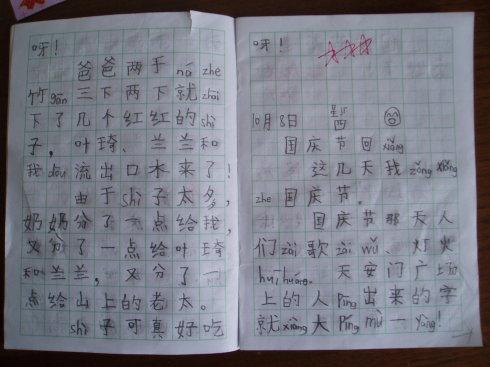 呀！
爸爸两手ná zhe
竹gān三下两下就zhāi
下了几个红红的shì
子，叶琦、兰兰和
我dōu流出口水来了！
由于shì子太多，
奶奶分了一点给我，
又分了一点给叶琦
和兰兰，又分了一
点给山上的老太。
shì子可真好吃
呀！
10月8日 星期四
国庆节回xiǎng
这几天我zǒng xiǎng
zhe国庆节。
国庆节那天人
们zài歌zài wǔ、灯火
huī huáng。天安门广场
上的人pīng出来的字
就xiàng大píng mù一yàng！